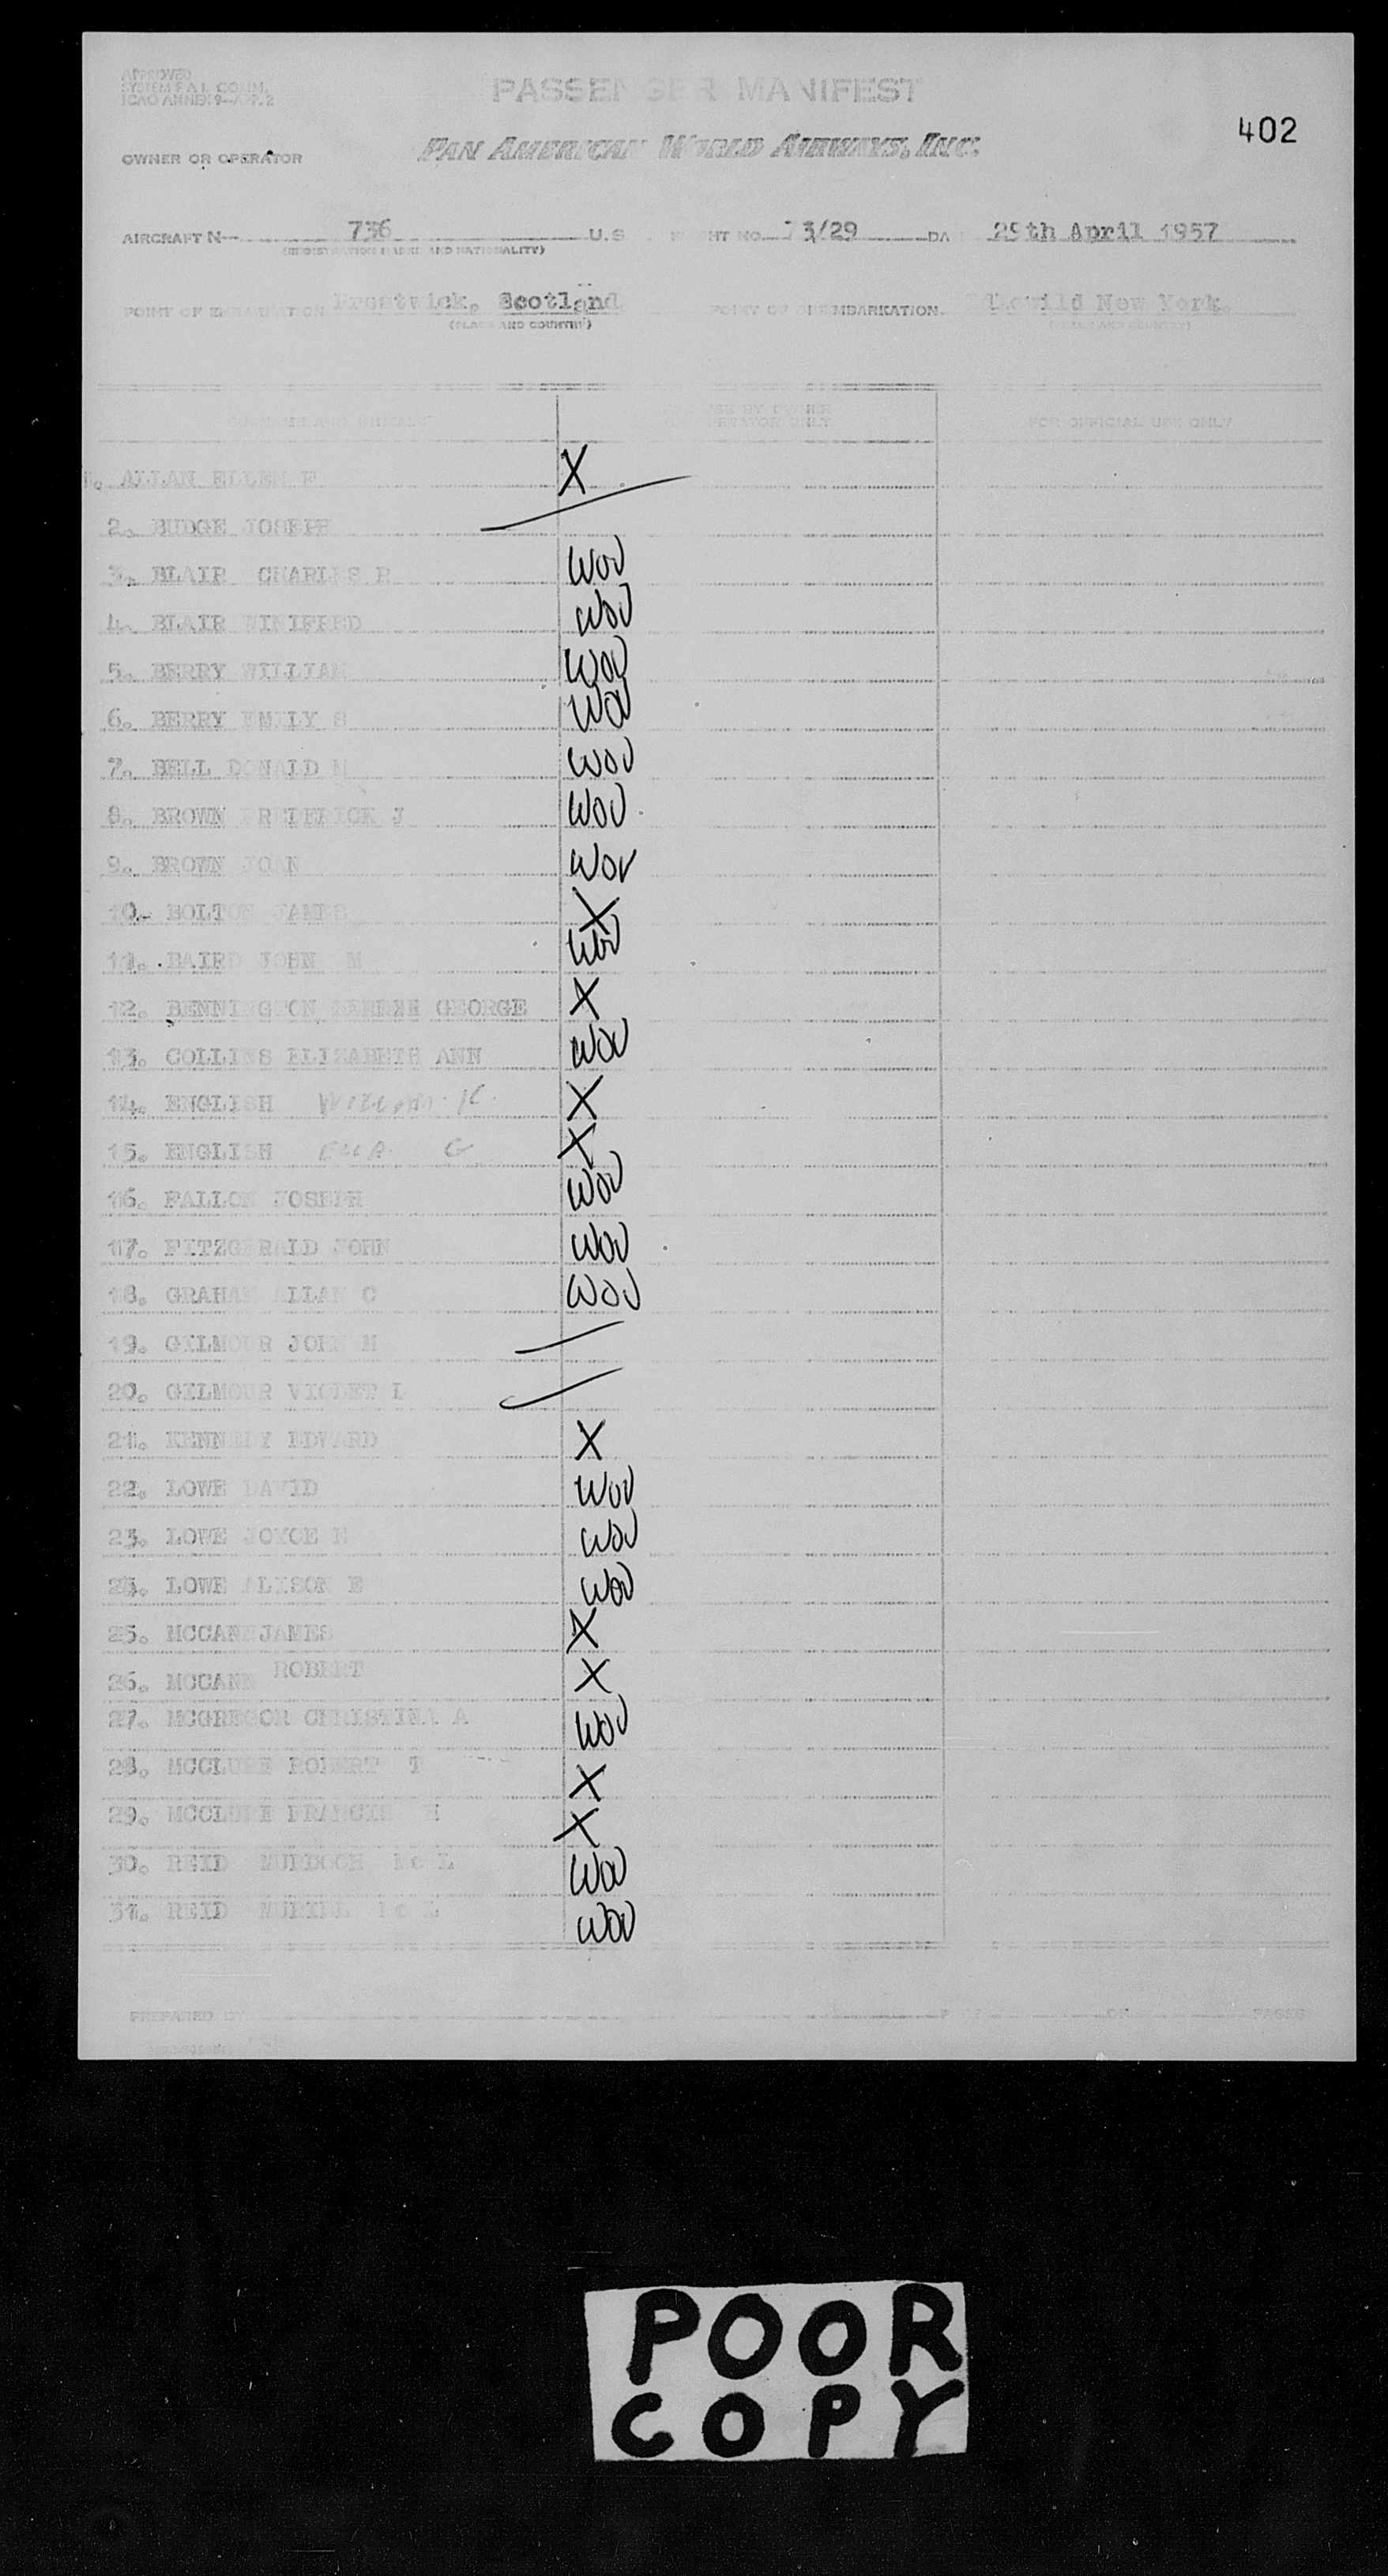 APPROVED
SYSTEM F A L COMM.
ICAO ANNEX 9-APP. 2
PASSENGER MANIFEST
402
OWNER OR OPERATOR PAN AMERICAN WORLD AIRWAYS, INC.
AIRCRAFT N- 736 U.S. FLIGHT NO. 73/29 DA 29th April 1957
(REGISTRATION MARKS AND NATIONALITY)
POINT OF EMBARKATION Prestwick, Scotland POINT OF DISEMBARKATION Idlewild New York.
(PLACE AND COUNTRY) (PLACE AND COUNTRY)
SURNAME AND INITIALS
USE BY OWNER
OR OPERATOR ONLY
FOR OFFICIAL USE ONLY
1. ALLAN ELLEN F X
2. BUDGE JOSEPH
3. BLAIR CHARLES R WOV
4. BLAIR WINIFRED WOV
5. BERRY WILLIAM WOV
6. BERRY EMILY S WOV
7. BELL DONALD M WOV
8. BROWN FREDERICK J WOV
9. BROWN JOAN WOV
10. BOLTON JAMES X
11. BAIRD JOHN M WOV
12. BENNINGTON GEORGE X
13. COLLINS ELIZABETH ANN WOV
14. ENGLISH William K. X
15. ENGLISH ELLA G X
16. FALLON JOSEPH WOV
17. FITZGERALD JOHN WOV
18. GRAHAM ALLAN C WOV
19. GILMOUR JOHN M
20. GILMOUR VIOLET L
21. KENNEDY EDWARD X
22. LOWE DAVID WOV
23. LOWE JOYCE WOV
24. LOWE ALISON E WOV
25. MCCANN JAMES X
26. MCCANN ROBERT X
27. MCGREGOR CHRISTINA A WOV
28. MCCLURE ROBERT T X
29. MCCLURE FRANCIS H X
30. REID MURDOCH Mc L WOV
31. REID WOV
PREPARED BY OF PAGES
POOR
COPY